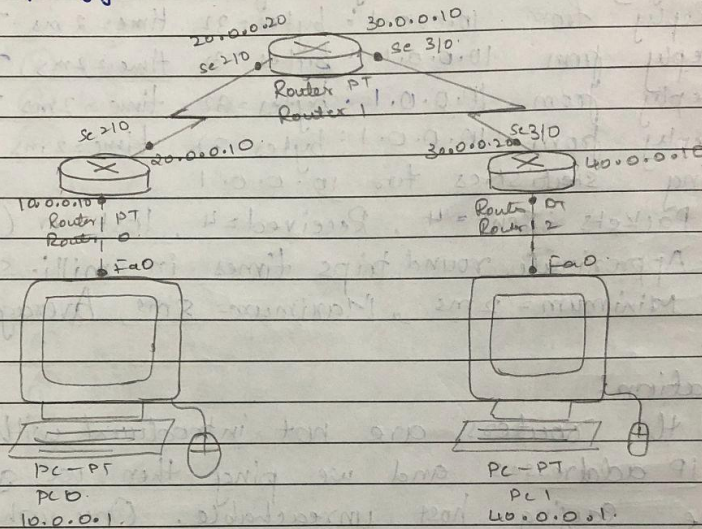 20.0.0.20
30.0.0.10
se 2/0
se 3/0
Router PT
Router 1
se 2/0
20.0.0.10
se 3/0
30.0.0.20
40.0.0.10
10.0.0.10
Router PT
Router 0
Router PT
Router 2
Fa0
Fa0
PC-PT
PC0
10.0.0.1.
PC-PT
PC1
40.0.0.1.